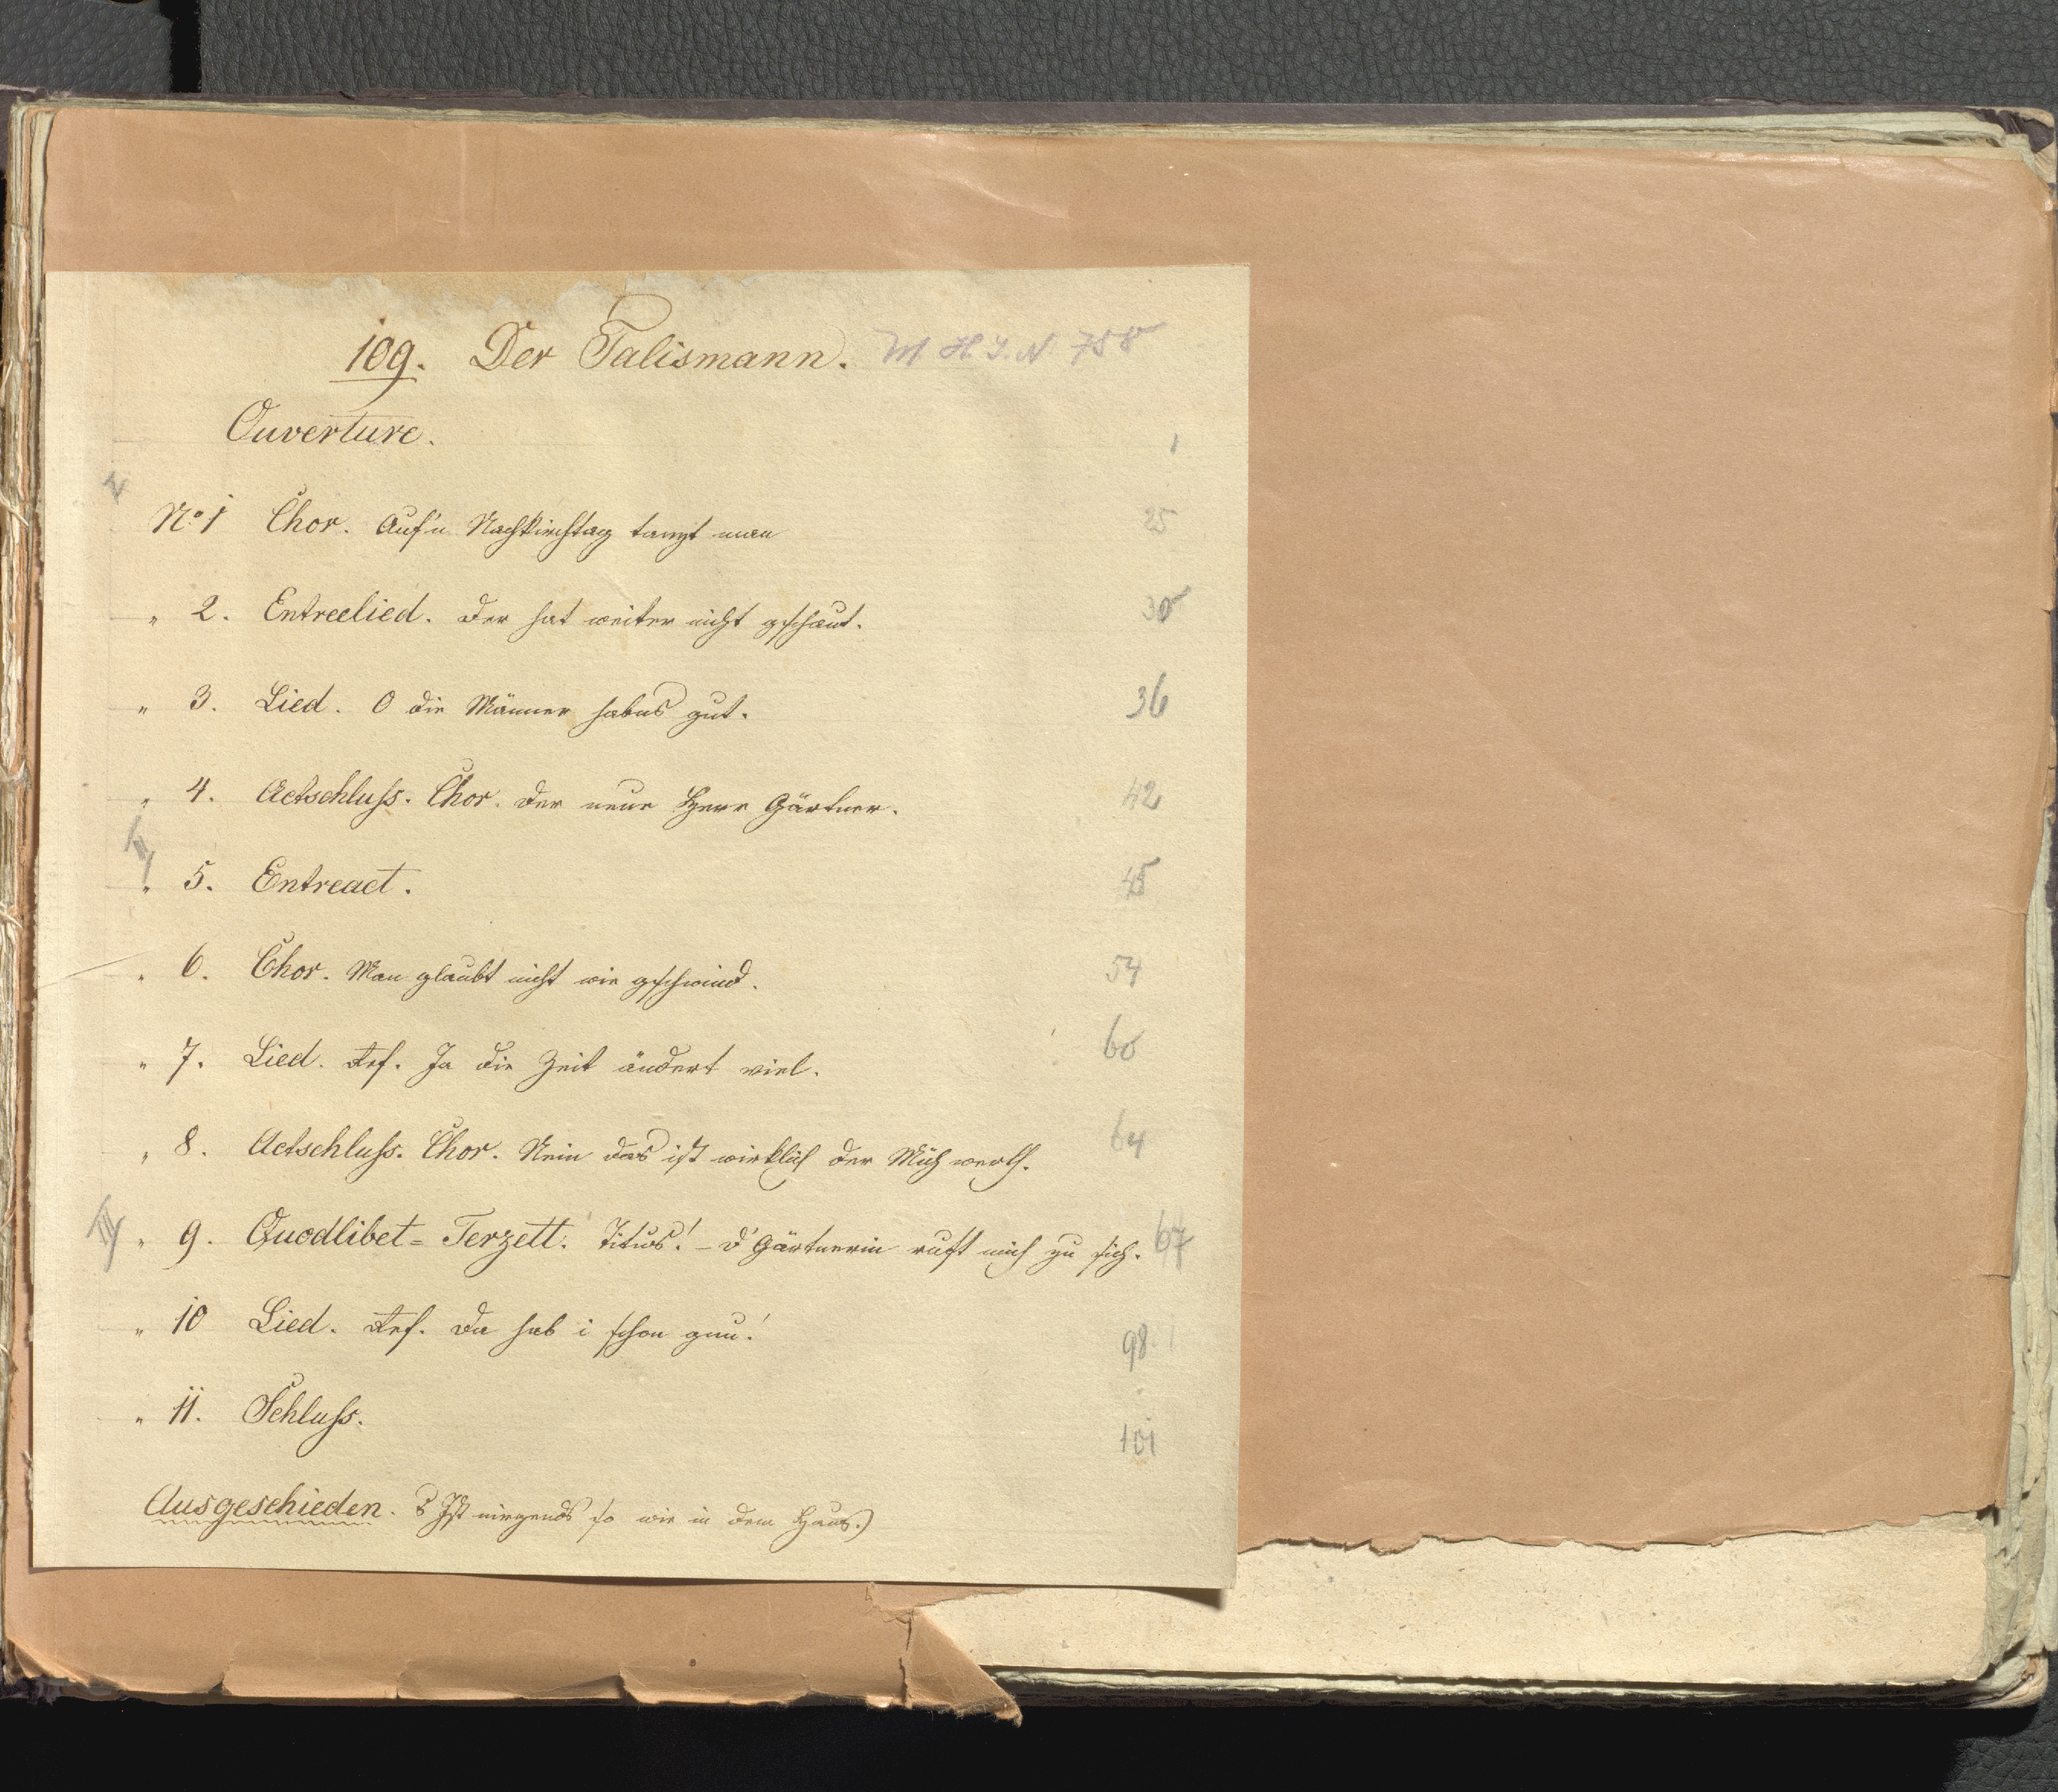 109. Der Talismann. M H. I. N. 758
Ouverture. 1
No. 1 Chor. Auf'n Nachkirchtag tanzt man 25
" 2. Entreelied. Der hat weiter nicht gschaut. 30
" 3. Lied. O die Männer habns gut. 36
" 4. Actschluss. Chor. Der neue Herr Gärtner. 42
II
" 5. Entreact. 45
" 6. Chor. Man glaubt nicht wie gschwind. 54
" 7. Lied. Ref. Ja die Zeit ändert viel. 60
" 8. Actschluss. Chor. Nein das ist wirklich der Müh werth. 64
III " 9. Quodlibet=Terzett. Titus! - d'Gärtnerin ruft mich zu sich. 67
" 10 Lied. Ref. Da hab i schon gnu! 98
" 11. Schluss. 101
Ausgeschieden. 's Ist nirgends so wie in dem Haus.)